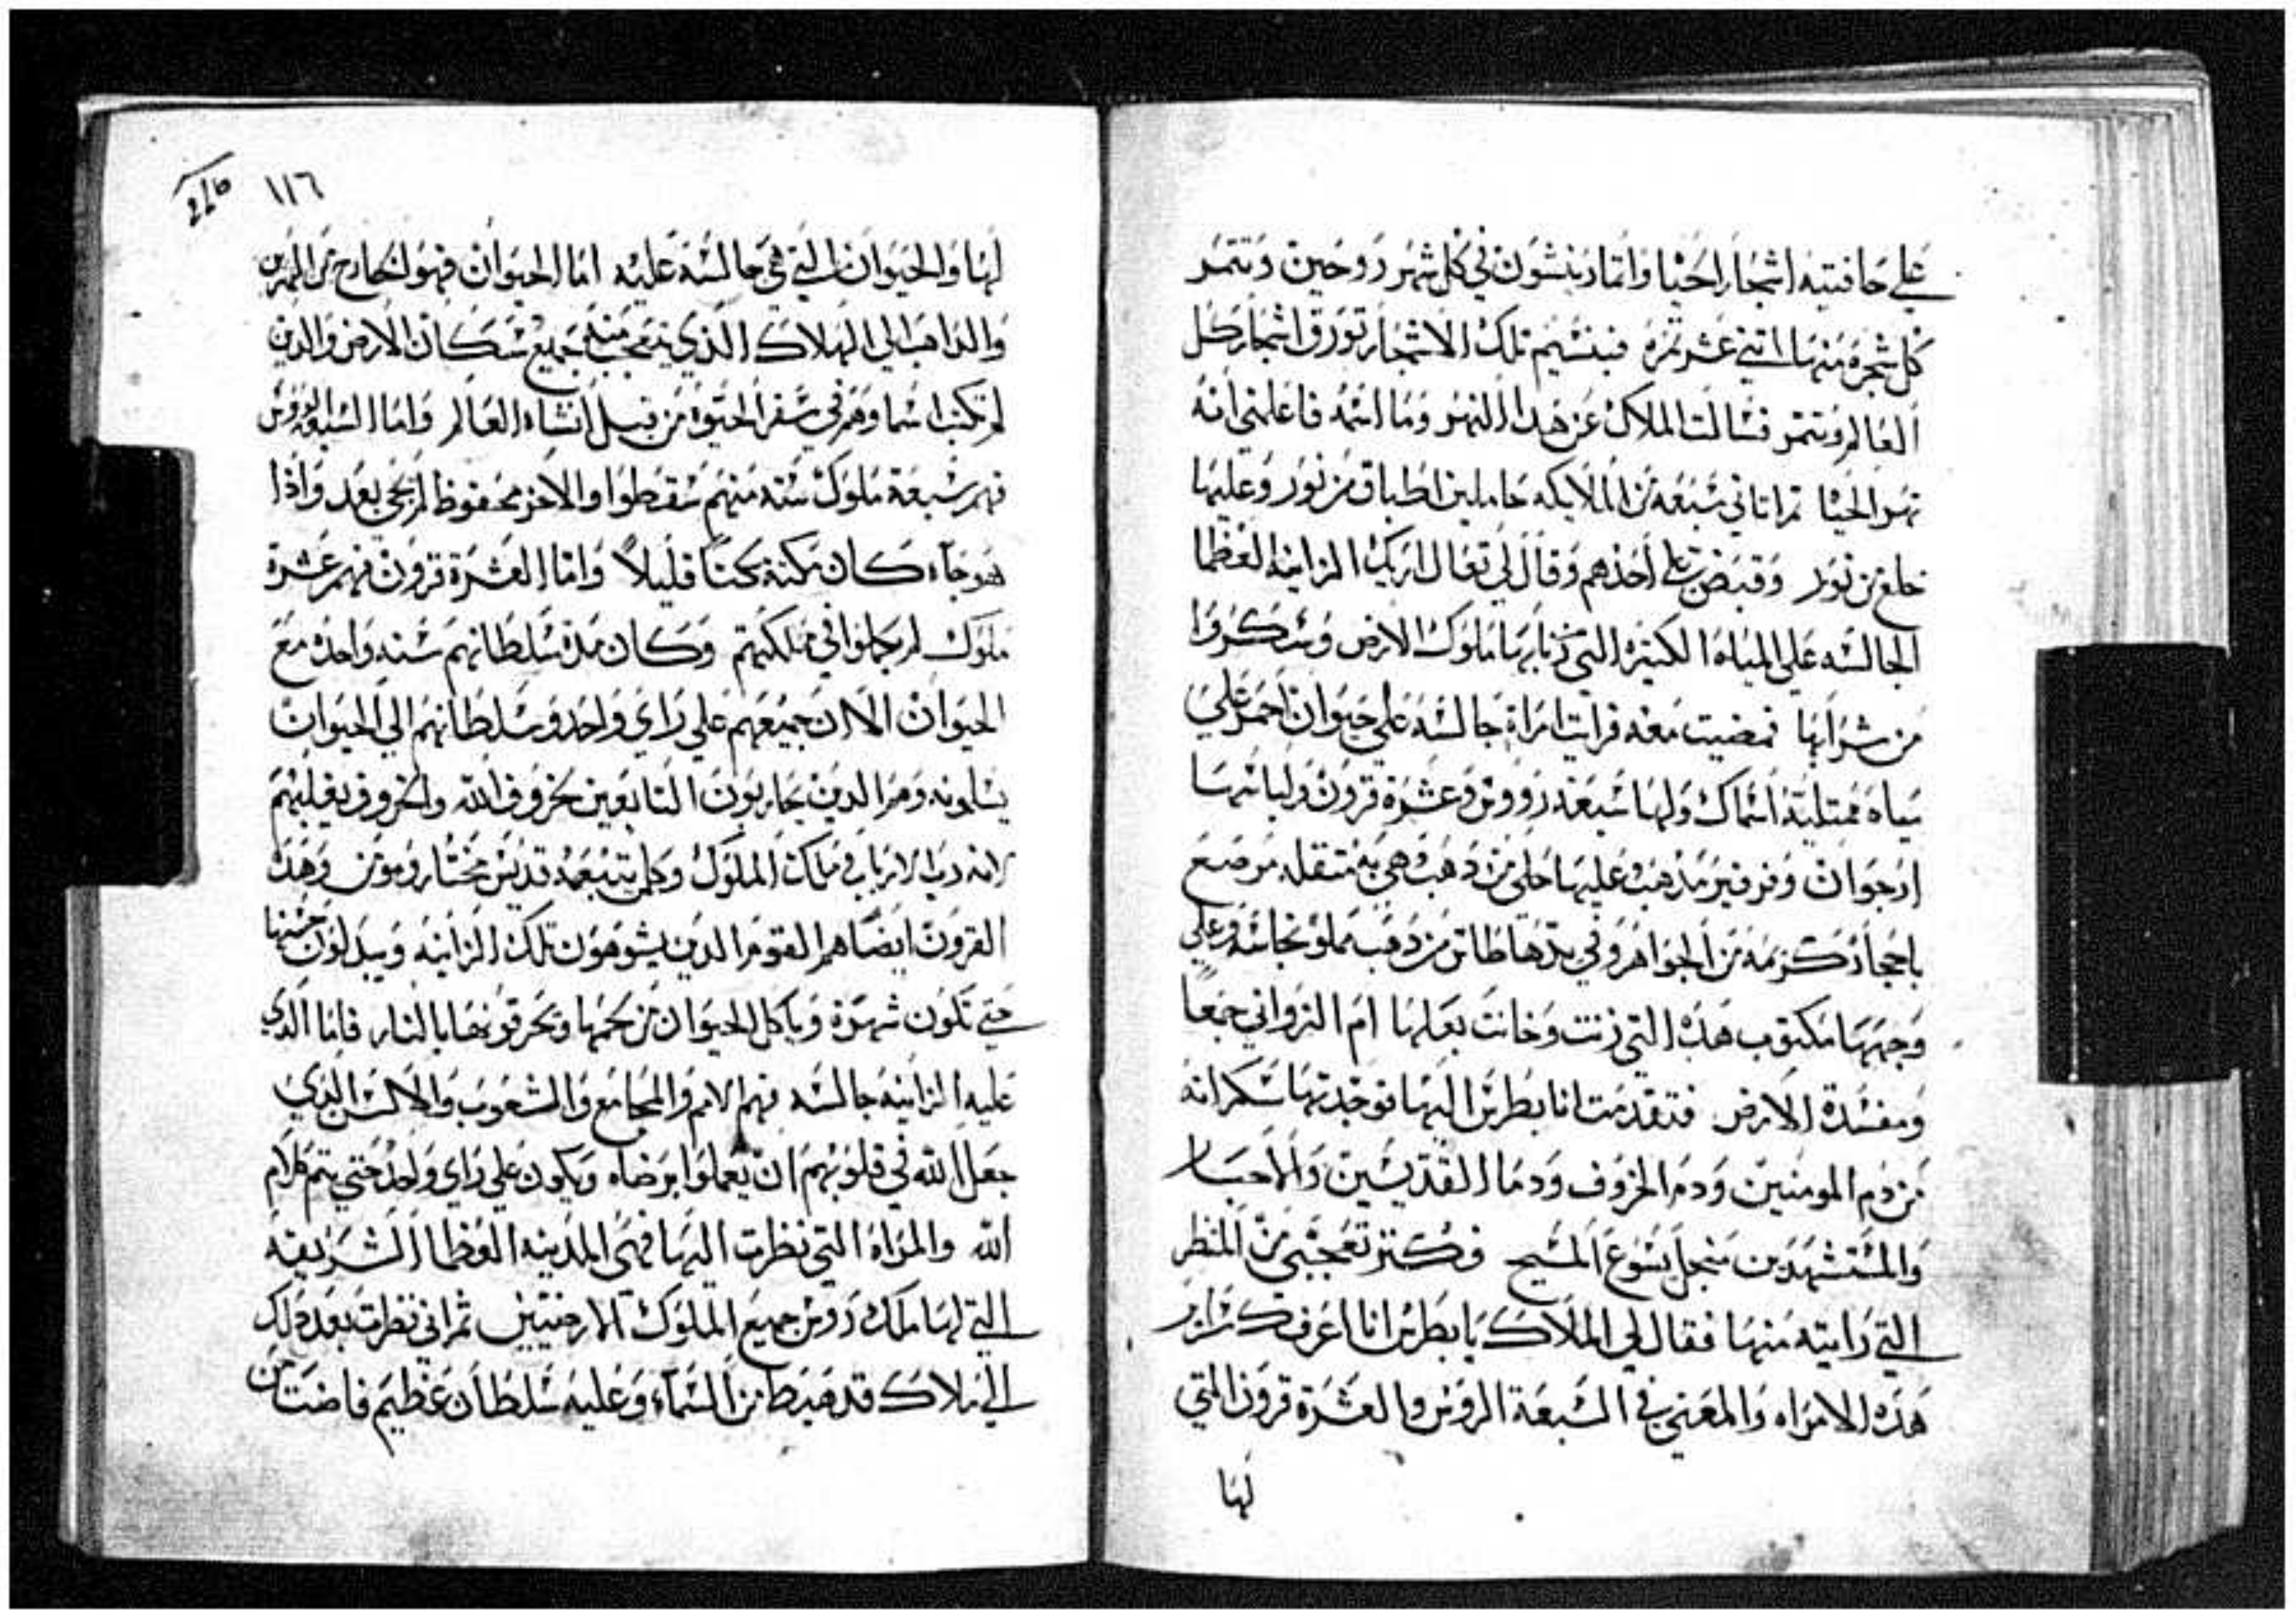 علي حافتيه اشجار الحيا واثمار ينشون في كل شهر دوحين وتتمر
كل شجره منها اثني عشر تمره فبنسيم تلك الاشجار تورق اشجار كل
العالم وتتمر فسالت الملاك عن هدا النهر وما اسمه فاعلمني انه
نهر الحيا تم اتاني سبعه من الملايكه حاملين اطباق من نور وعليها
خلع من نور وقبض علي احدهم وقال لي تعال اريك الزانيه العظما
الجالسه علي المياه الكتيره التي زنا بها ملوك الارض وسكروا
من شرابها فمضيت معه فرايت امراة جالسه علي حيوان احمر علي
مياه ممتليه اسماك ولها سبعة رووس وعشرة قرون ولباسها
ارجوان وفرفير مدهب وعليها حلي من دهب وهي به متقله مرصع
باحجار كريمه من الجواهر وفي يدها طاس من دهب مملو نجاسه وعلي
وجهها مكتوب هده التي زنت وخانت بعلها ام الزواني جمعا
ومفسدة الارض فتقدمت انا بطرس اليها فوجدتها سكرانه
من دم المومنين ودم الخروف ودما القديسين والاحبار
والمستشهدين من اجل يسوع المسيح فكتر تعجبي من المنظر
التي رايته منها فقال لي الملاك يا بطرس انا اعرفك سراير
هده الامراه والمعني في السبعة الروس والعشرة قرون التي
لها
١١٦
لها والحيوان التي هي جالسه عليه اما الحيوان فهو الخارج من
والداهب الي الهلاك الذي يتعجب منه جميع سكان الارض والدين
لم تكتب اسماوهم في سفر الحيوة من قبل انشاء العالم واما السبعه رووس
فهم سبعة ملوك سته منهم سقطوا والاخر محفوظ لم يجي بعد واذا
هو جاء كان مكته مكتا قليلا واما العشرة قرون فهم عشرة
ملوك لم يملوا في مملكتهم وكان مدة سلطانهم سنه واحده مع
الحيوان الان جميعهم علي راي واحد وسلطانهم الي الحيوان
يسلمونه وهم الدين يحاربون التابعين خروف الله والخروف يغلبهم
لانه رب الارباب وملك الملوك وكلمن تبعه قديس مختار ومومن وهده
القرون ايضا هم القوم الدين يشوهون تلك الزانيه ويبدلون حسنها
حتي تكون شهرة وياكل الحيوان من لحمها ويحرقونها بالنار فاما الدي
عليه الزانيه جالسه فهم الامم والمجامع والشعوب والالسن الدي
جعل الله في قلوبهم ان يعملوا برضاه ويكون علي راي واحد حتي يتم كلام
الله والمراه التي نظرت اليها فهي المدينه العظما الشريفه
التي لها ملك روس جميع الملوك الارضيين تم اني نظرت بعد دلك
الي ملاك قد هبط من السماء وعليه سلطان عظيم فاضت من